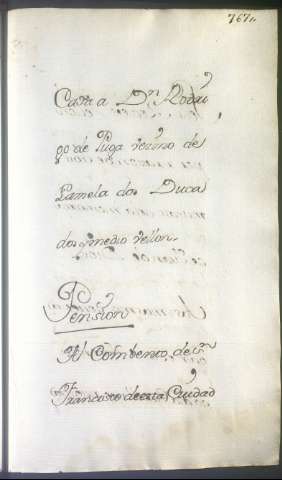 767,,
Casa a Dn. Rodri
go de Puga vezino de
Lamela dos Duca
dos y medio vellon
Pension
Al Combento de Sn.
Francisco de esta Ciudad